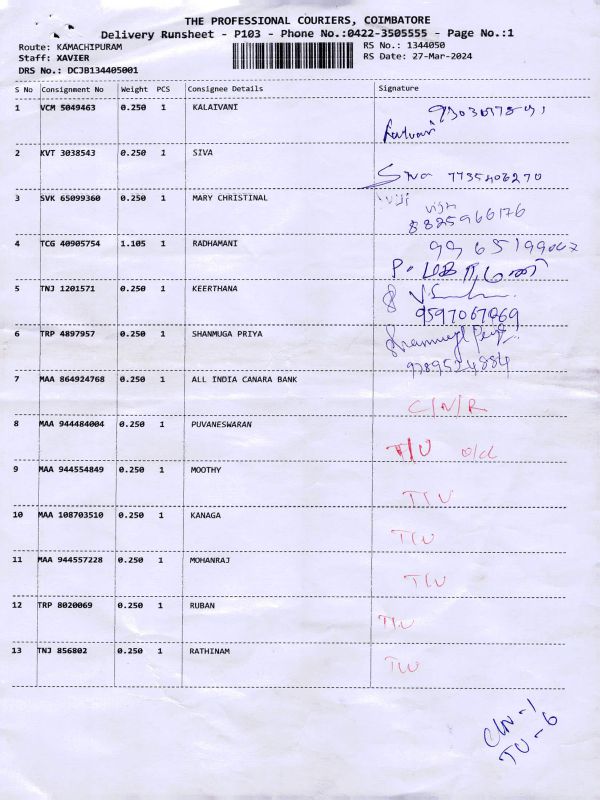 THE PROFESSIONAL COURIERS, COIMBATORE
Delivery Runsheet - P103 - Phone No.:0422-3505555 - Page No.:1
Route: KAMACHIPURAM RS No.: 1344050
Staff: XAVIER RS Date: 27-Mar-2024
DRS No.: DCJB134405001
S No Consignment No Weight PCS Consignee Details Signature
1 VCM 5049463 0.250 1 KALAIVANI
2 KVT 3038543 0.250 1 SIVA
Siva 7735406270
3 SVK 65099360 0.250 1 MARY CHRISTINAL viji
viji
8825966176
4 TCG 40905754 1.105 1 RADHAMANI
5 TNJ 1201571 0.250 1 KEERTHANA
9597067969
6 TRP 4897957 0.250 1 SHANMUGA PRIYA
9789524884
7 MAA 864924768 0.250 1 ALL INDIA CANARA BANK
C/N/R
8 MAA 944484004 0.250 1 PUVANESWARAN
T/U
9 MAA 944554849 0.250 1 MOOTHY
T/U
10 MAA 108703510 0.250 1 KANAGA
T/U
11 MAA 944557228 0.250 1 MOHANRAJ
T/U
12 TRP 8020069 0.250 1 RUBAN
T/U
13 TNJ 856802 0.250 1 RATHINAM
T/U
C/N - 1
TU - 6